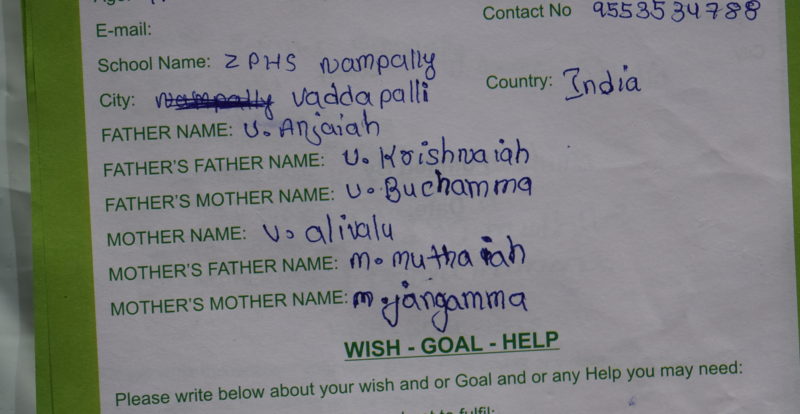 Contact No 9553534788
E-mail:
School Name: ZPHS Nampally
City: Nampally Vaddapalli Country: India
FATHER NAME: U. Anjaiah
FATHER'S FATHER NAME: U. Krishnaiah
FATHER'S MOTHER NAME: U. Buchamma
MOTHER NAME: U. alivalu
MOTHER'S FATHER NAME: M. muthaiah
MOTHER'S MOTHER NAME: M. jangamma
WISH - GOAL - HELP
Please write below about your wish and or Goal and or any Help you may need: